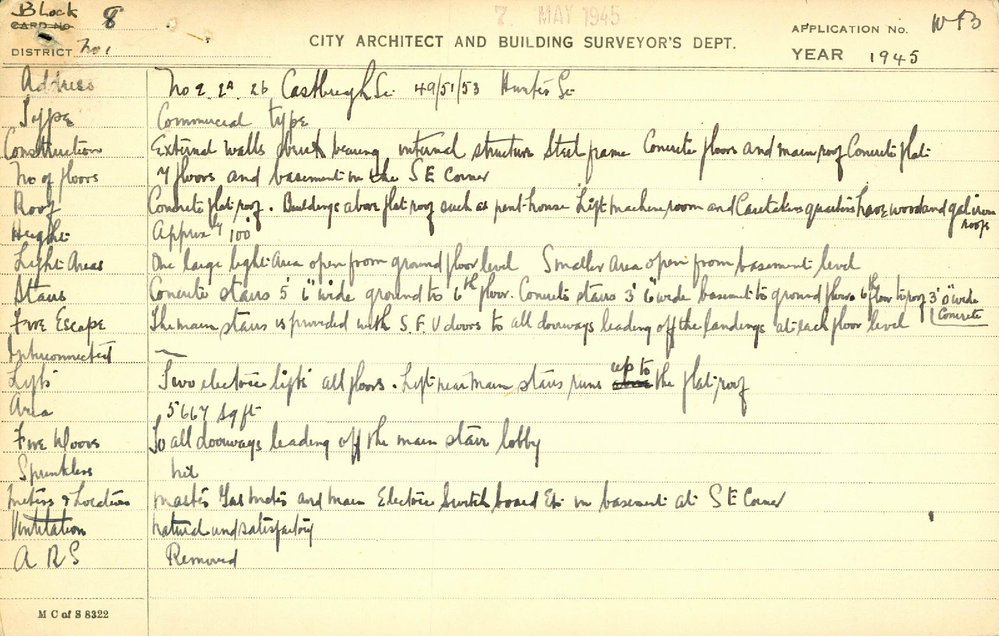 Block 8
CARD NO.
7 MAY 1945
APPLICATION NO. WB
DISTRICT No 1
CITY ARCHITECT AND BUILDING SURVEYOR'S DEPT.
YEAR 1945
Address No 2 2A 2B Castlereagh St 49/51/53 Hunter St
Type Commercial type
Construction External walls brick bearing internal structure Steel frame Concrete floors and main roof Concrete flat
No of floors 7 floors and basement in the S E Corner
Roof Concrete flat roof. Buildings above flat roof such as pent-house Lift machine room and Caretakers quarters have wood and gal iron roofs
Height Approx 100'
Light Areas One large light area open from ground floor level Smaller area open from basement level
Stairs Concrete stairs 5' 6" wide ground to 6th floor. Concrete stairs 3' 6" wide basement to ground floor 6th floor to roof 3' 0" wide Concrete
Fire Escape The main stairs is provided with S.F.U doors to all doorways leading off the landings at each floor level
Interconnected —
Lifts Two electric lifts all floors. Lift near main stairs runs up to the flat roof
Area 5667 sq ft
Fire Doors To all doorways leading off the main stair lobby
Sprinklers nil
Meters & Location Master Gas Meter and main Electric Switch board Etc in basement at S E Corner
Ventilation natural and satisfactory
A R S Removed
M C of S 8322